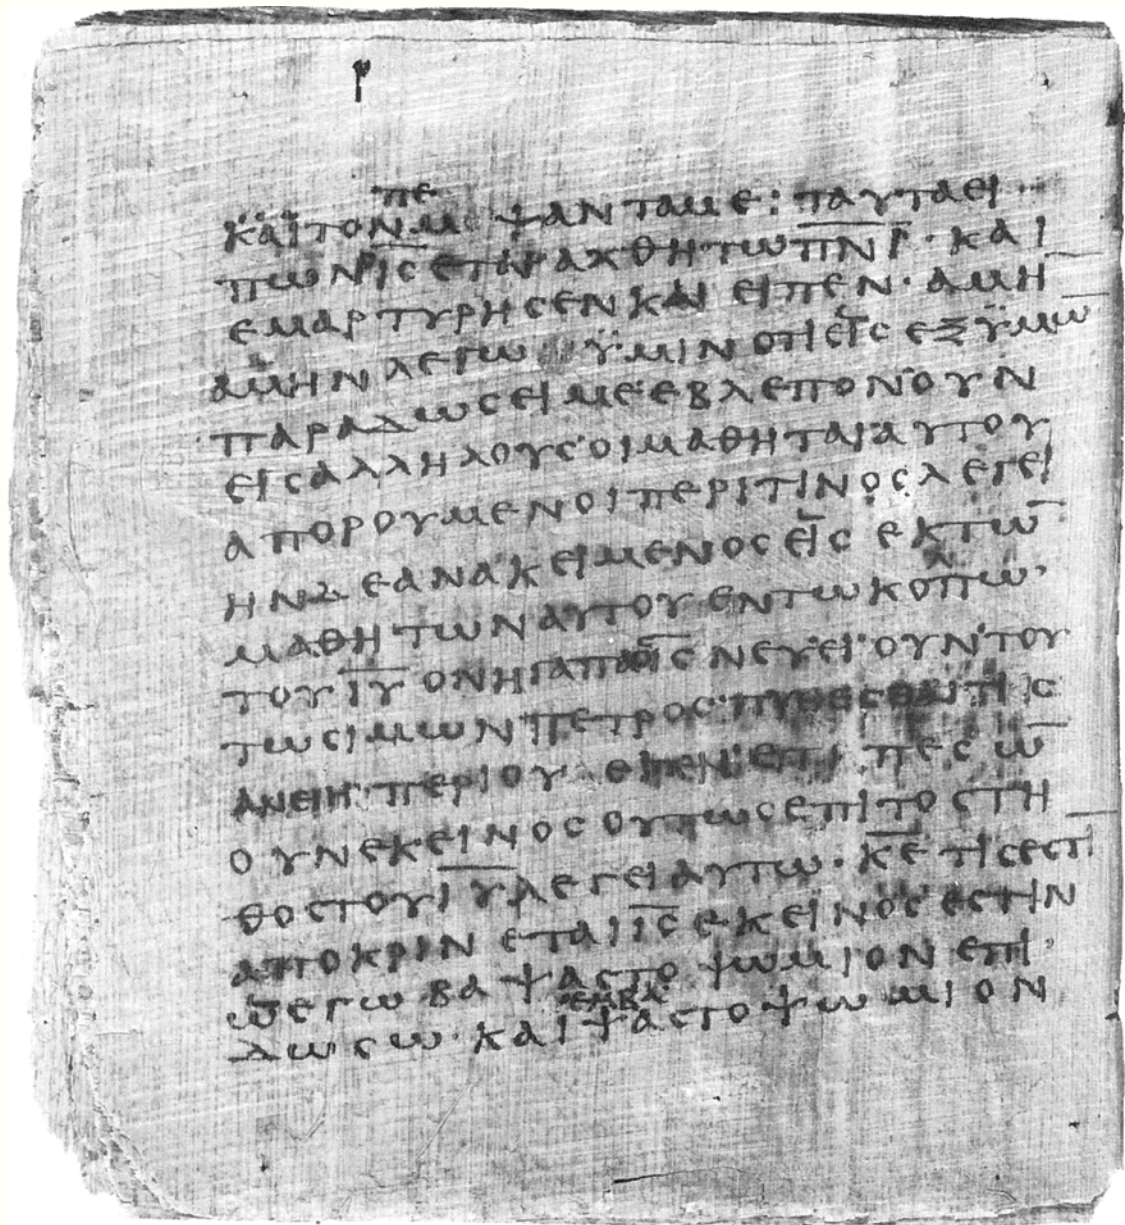 ρ
πε
και τον μ ψαντα με: ταυτα ει
πων ι̅ς̅ εταραχθη τω π̅ν̅ι̅· και
εμαρτυρησεν και ειπεν· αμη
αμην λεγω ϋμιν οτι εις εξ ϋμω̅
παραδωσει με εβλεπον ουν
εις αλληλους οι μαθηται αυτου
απορουμενοι περι τινος λεγει
ην δε ανακειμενος εις εκ τω̅
μαθητων αυτου εν τω κολπω
του ι̅υ̅ ον ηγαπα ι̅ς̅ νευει ουν του
τω σιμων πετρος πυθεσθαι τις
αν ειη περι ου ειπεν επι πεσω̅
ουν εκεινος ουτως επι το στη
θος του ι̅υ̅ λεγει αυτω· κ̅ε̅ τις εστι̅
αποκρινεται ι̅ς̅ εκεινος εστιν
ω εγω βαψας το ψωμιον επι
εμβα
δωσω· και ψας το ψωμιον